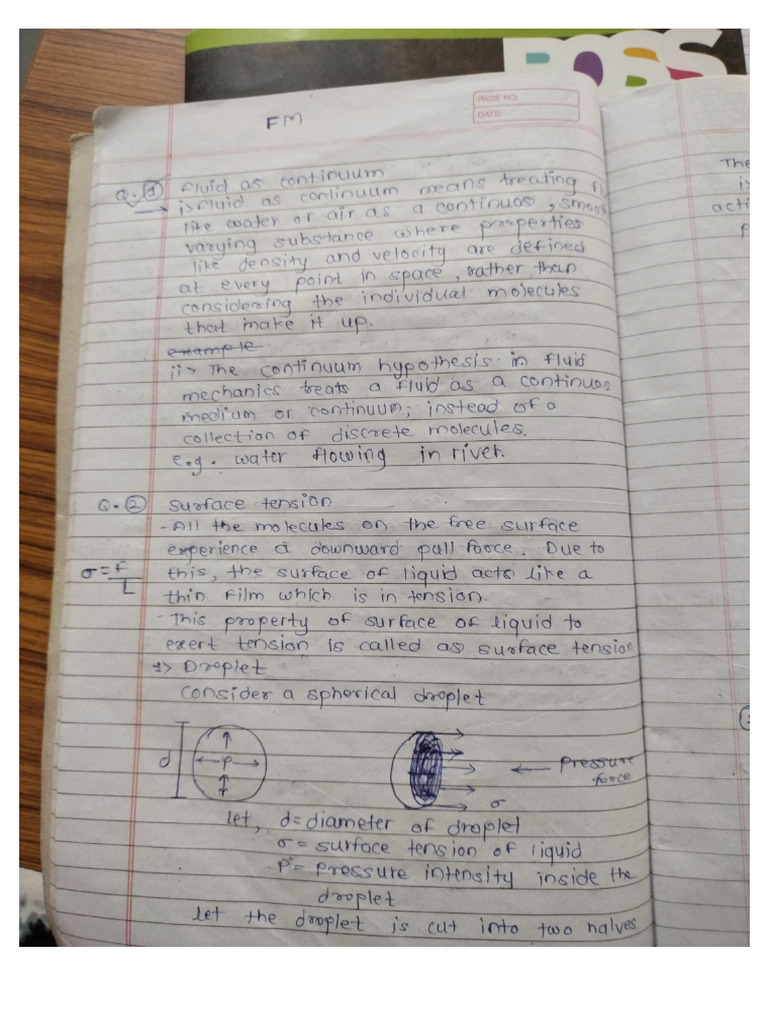 BOSS
PAGE NO.
DATE:
FM
Q.① Fluid as continuum
i> Fluid as continuum means treating
like water or air as a continuos, smoo
varying substance where properties
like density and velocity are defined
at every point in space, rather than
considering the individual molecules
that make it up.
example.
ii> The continuum hypothesis in fluid
mechanics treats a fluid as a continuos
medium or continuum; instead of a
collection of discrete molecules.
e.g. water flowing in river.
Q.② Surface tension
- All the molecules on the free surface
experience a downward pull force. Due to
σ = F/L this, the surface of liquid acts like a
thin film which is in tension.
- This property of surface of liquid to
exert tension is called as surface tension
1> Droplet
consider a spherical droplet
d P Pressure force
σ
let, d = diameter of droplet
σ = surface tension of liquid
P = pressure intensity inside the
droplet
let the droplet is cut into two halves
The
i>
acti
P